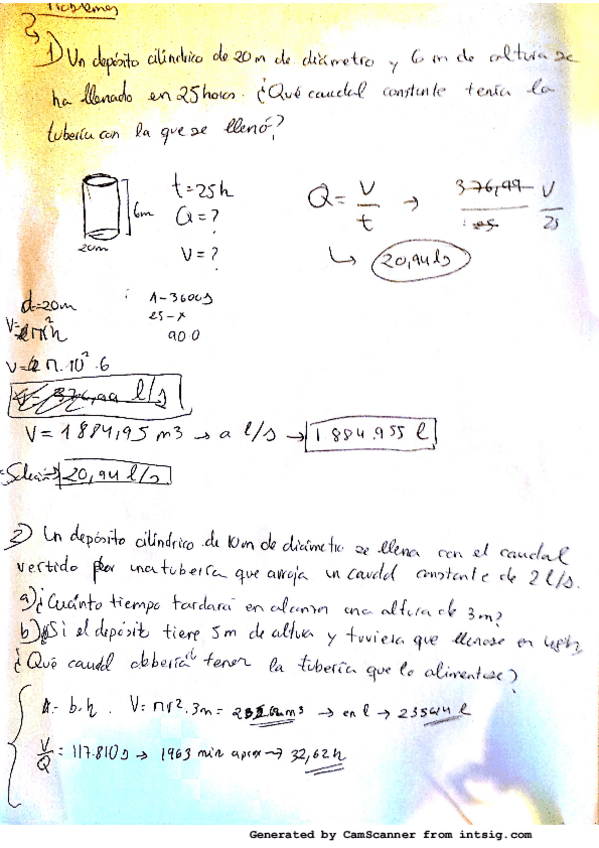 Problemas
1) Un depósito cilíndrico de 20m de diámetro y 6 m de altura se
ha llenado en 25 horas. ¿Qué caudal constante tenía la
tubería con la que se llenó?
6m
20m
t=25h
Q=?
V=?
Q= V/t → 376,99 V/25
↳ 20,94 l/s
d=20m
1-3600s
25-x
900
V=πr²h
V=π·10²·6
V= 376,99 l/s
V=1884,95 m3 → a l/s → 1884.955 l
20,94 l/s
2) Un depósito cilíndrico de 10m de diámetro se llena con el caudal
vertido por una tubería que arroja un caudal constante de 2 l/s.
a) ¿Cuánto tiempo tardará en alcanzar una altura de 3m?
b) Si el depósito tiene 5m de altura y tuviera que llenarse en
¿Qué caudal debería tener la tubería que lo alimentase?
A= b·h. V= πr²·3m= → en l →
V/Q = 117.810s → 1963 min aprox → 32,62h
Generated by CamScanner from intsig.com